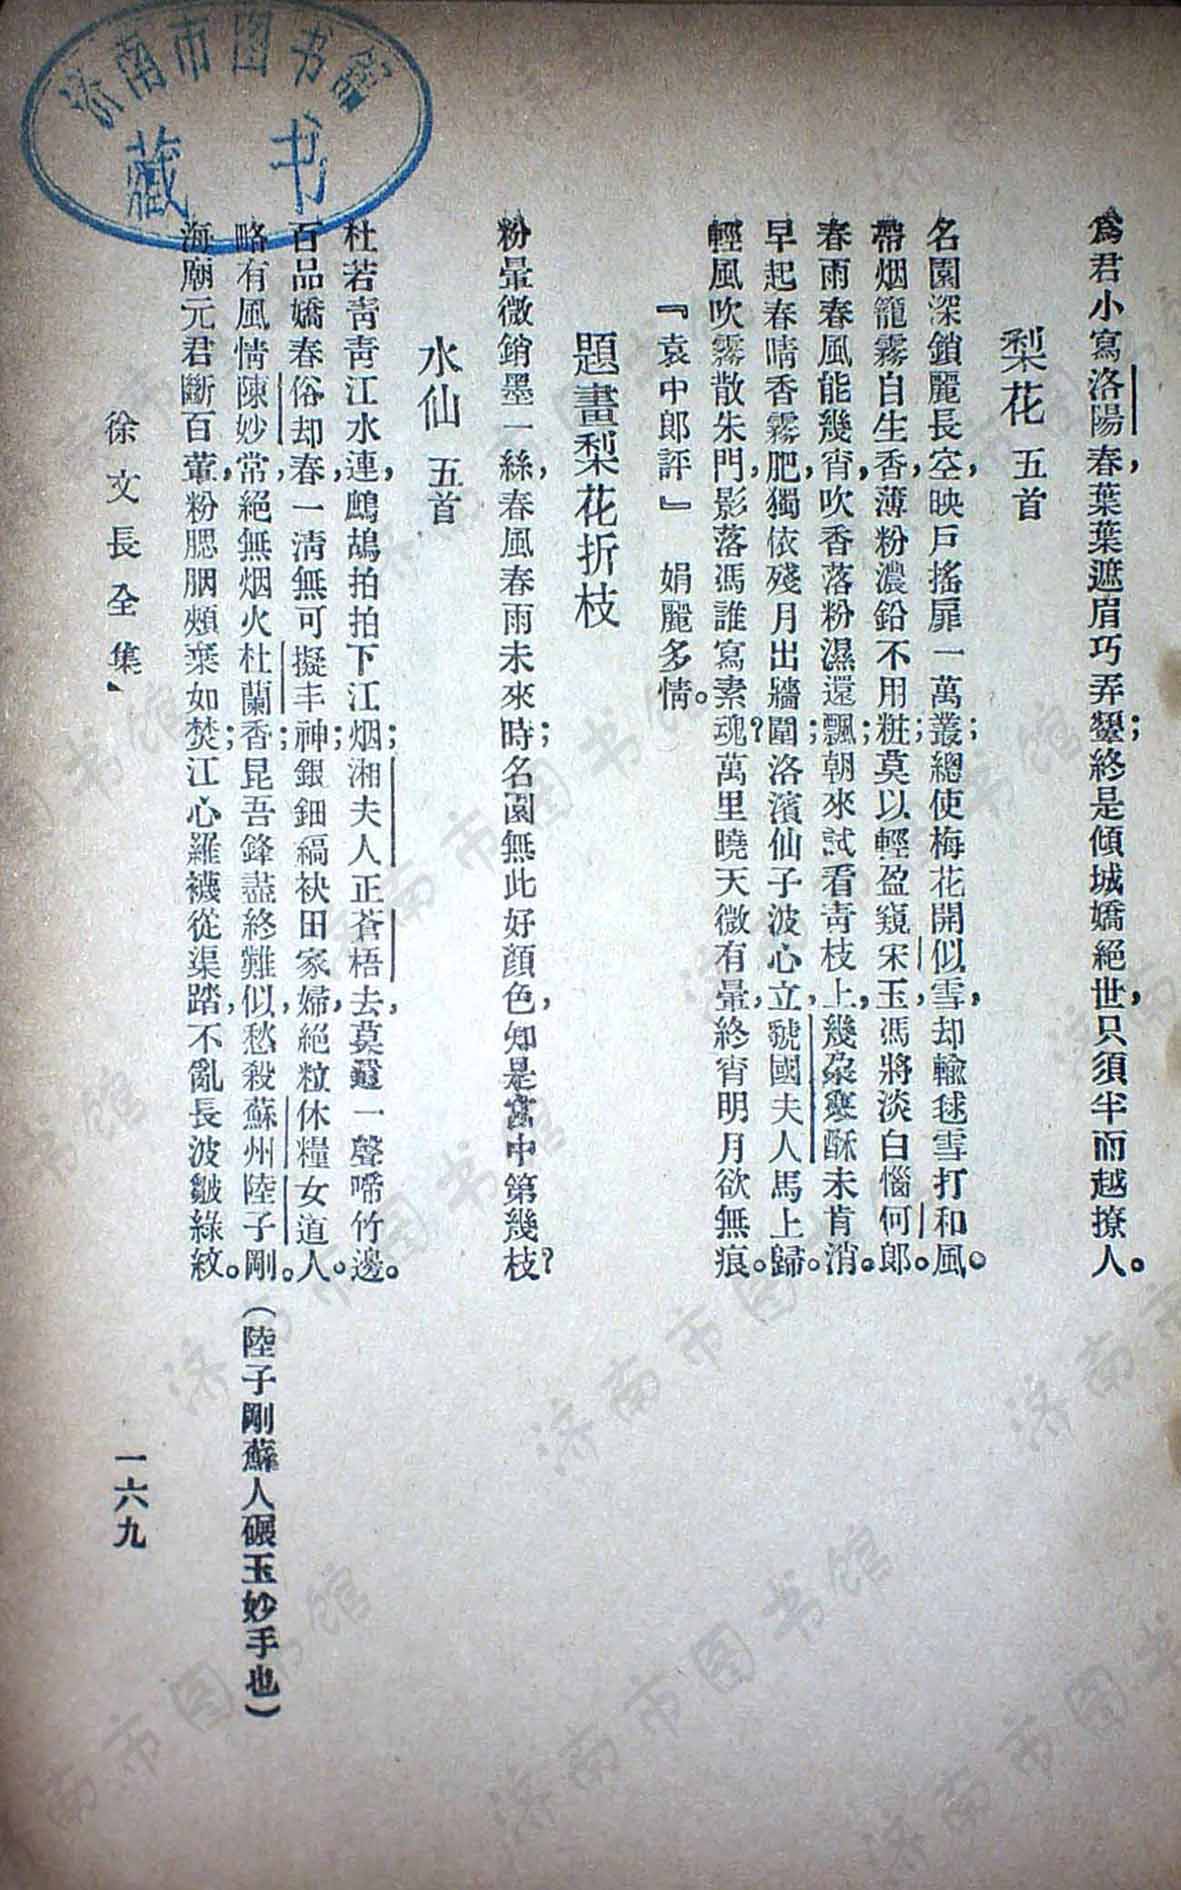 济南市图书馆
藏书
爲君小寫洛陽春，葉葉遮眉巧弄顰；終是傾城嬌絕世，只須半面越撩人。
梨花 五首
名園深鎖麗長空，映戶搖扉一萬叢；總使梅花開似雪，却輸毬雪打和風。
帶烟籠霧自生香，薄粉濃鉛不用粧；莫以輕盈窺宋玉，馮將淡白惱何郎。
春雨春風能幾宵，吹香落粉濕還飄；朝來試看青枝上，幾朶寒酥未肯消。
早起春晴香霧肥，獨依殘月出牆圍；洛濱仙子波心立，虢國夫人馬上歸。
輕風吹霧散朱門，影落馮誰寫素魂？萬里曉天微有暈，終宵明月欲無痕。
『袁中郎評』 娟麗多情。
題畫梨花折枝
粉暈微銷墨一絲，春風春雨未來時；名園無此好顏色，知是宮中第幾枝？
水仙 五首
杜若青青江水連，鷓鴣拍拍下江烟；湘夫人正蒼梧去，莫遣一聲啼竹邊。
百品嬌春俗却春，一淸無可擬丰神；銀鈿縞袂田家婦，絕粒休糧女道人。
略有風情陳妙常，絕無烟火杜蘭香；昆吾鋒盡終難似，愁殺蘇州陸子剛。（陸子剛蘇人碾玉妙手也）
海廟元君斷百葷，粉腮胭頰棄如焚；江心羅襪從渠踏，不亂長波皺綠紋。
徐文長全集、
一六九